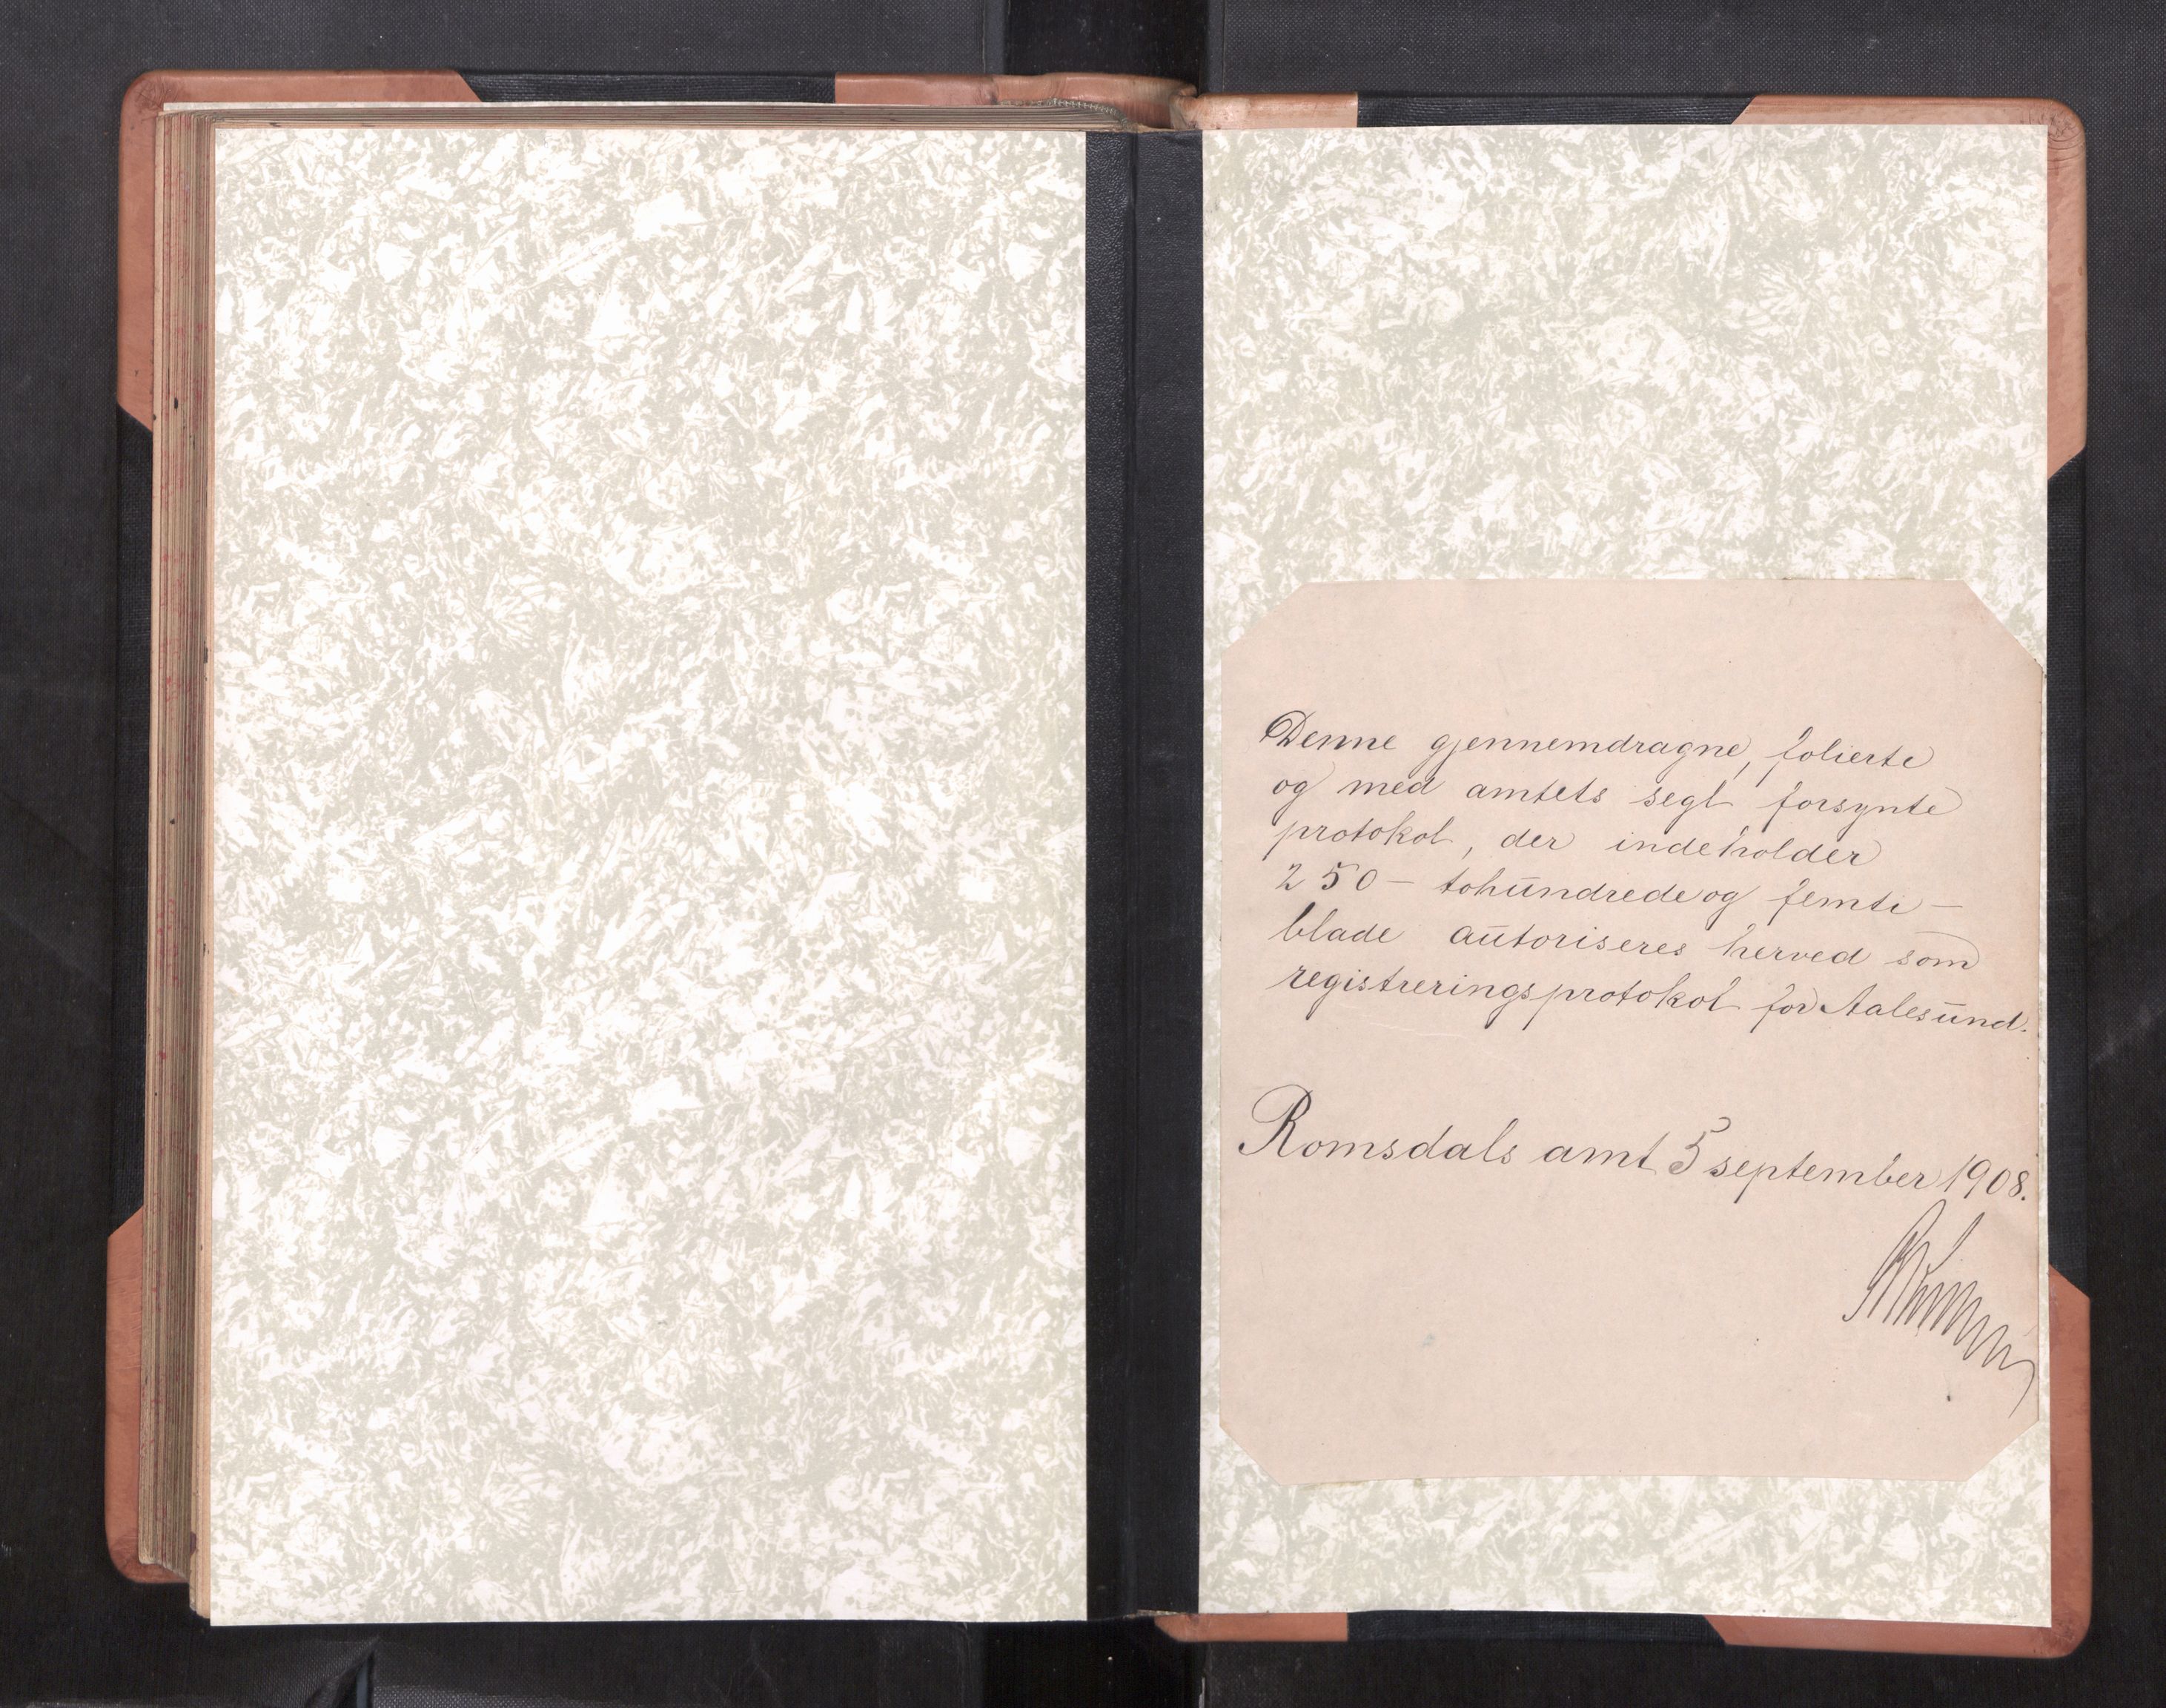 Denne gjennemdragne, folierte
og med amtets segl forsynte
protokol, der indeholder
250 – tohundrede og femti –
blade autoriseres herved som
registreringsprotokol for Aalesund.
Romsdals amt 5 september 1908.